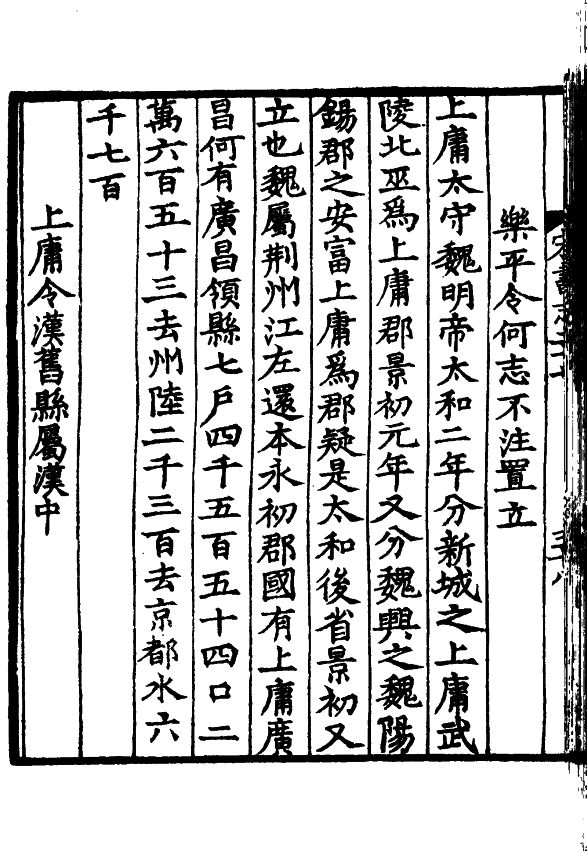 樂平令何志不注置立
上庸太守魏明帝太和二年分新城之上庸武
陵北巫爲上庸郡景初元年又分魏興之魏陽
錫郡之安富上庸爲郡疑是太和後省景初又
立也魏屬荆州江左還本永初郡國有上庸廣
昌何有廣昌領縣七戶四千五百五十四口二
萬六百五十三去州陸二千三百去京都水六
千七百
上庸令漢舊縣屬漢中